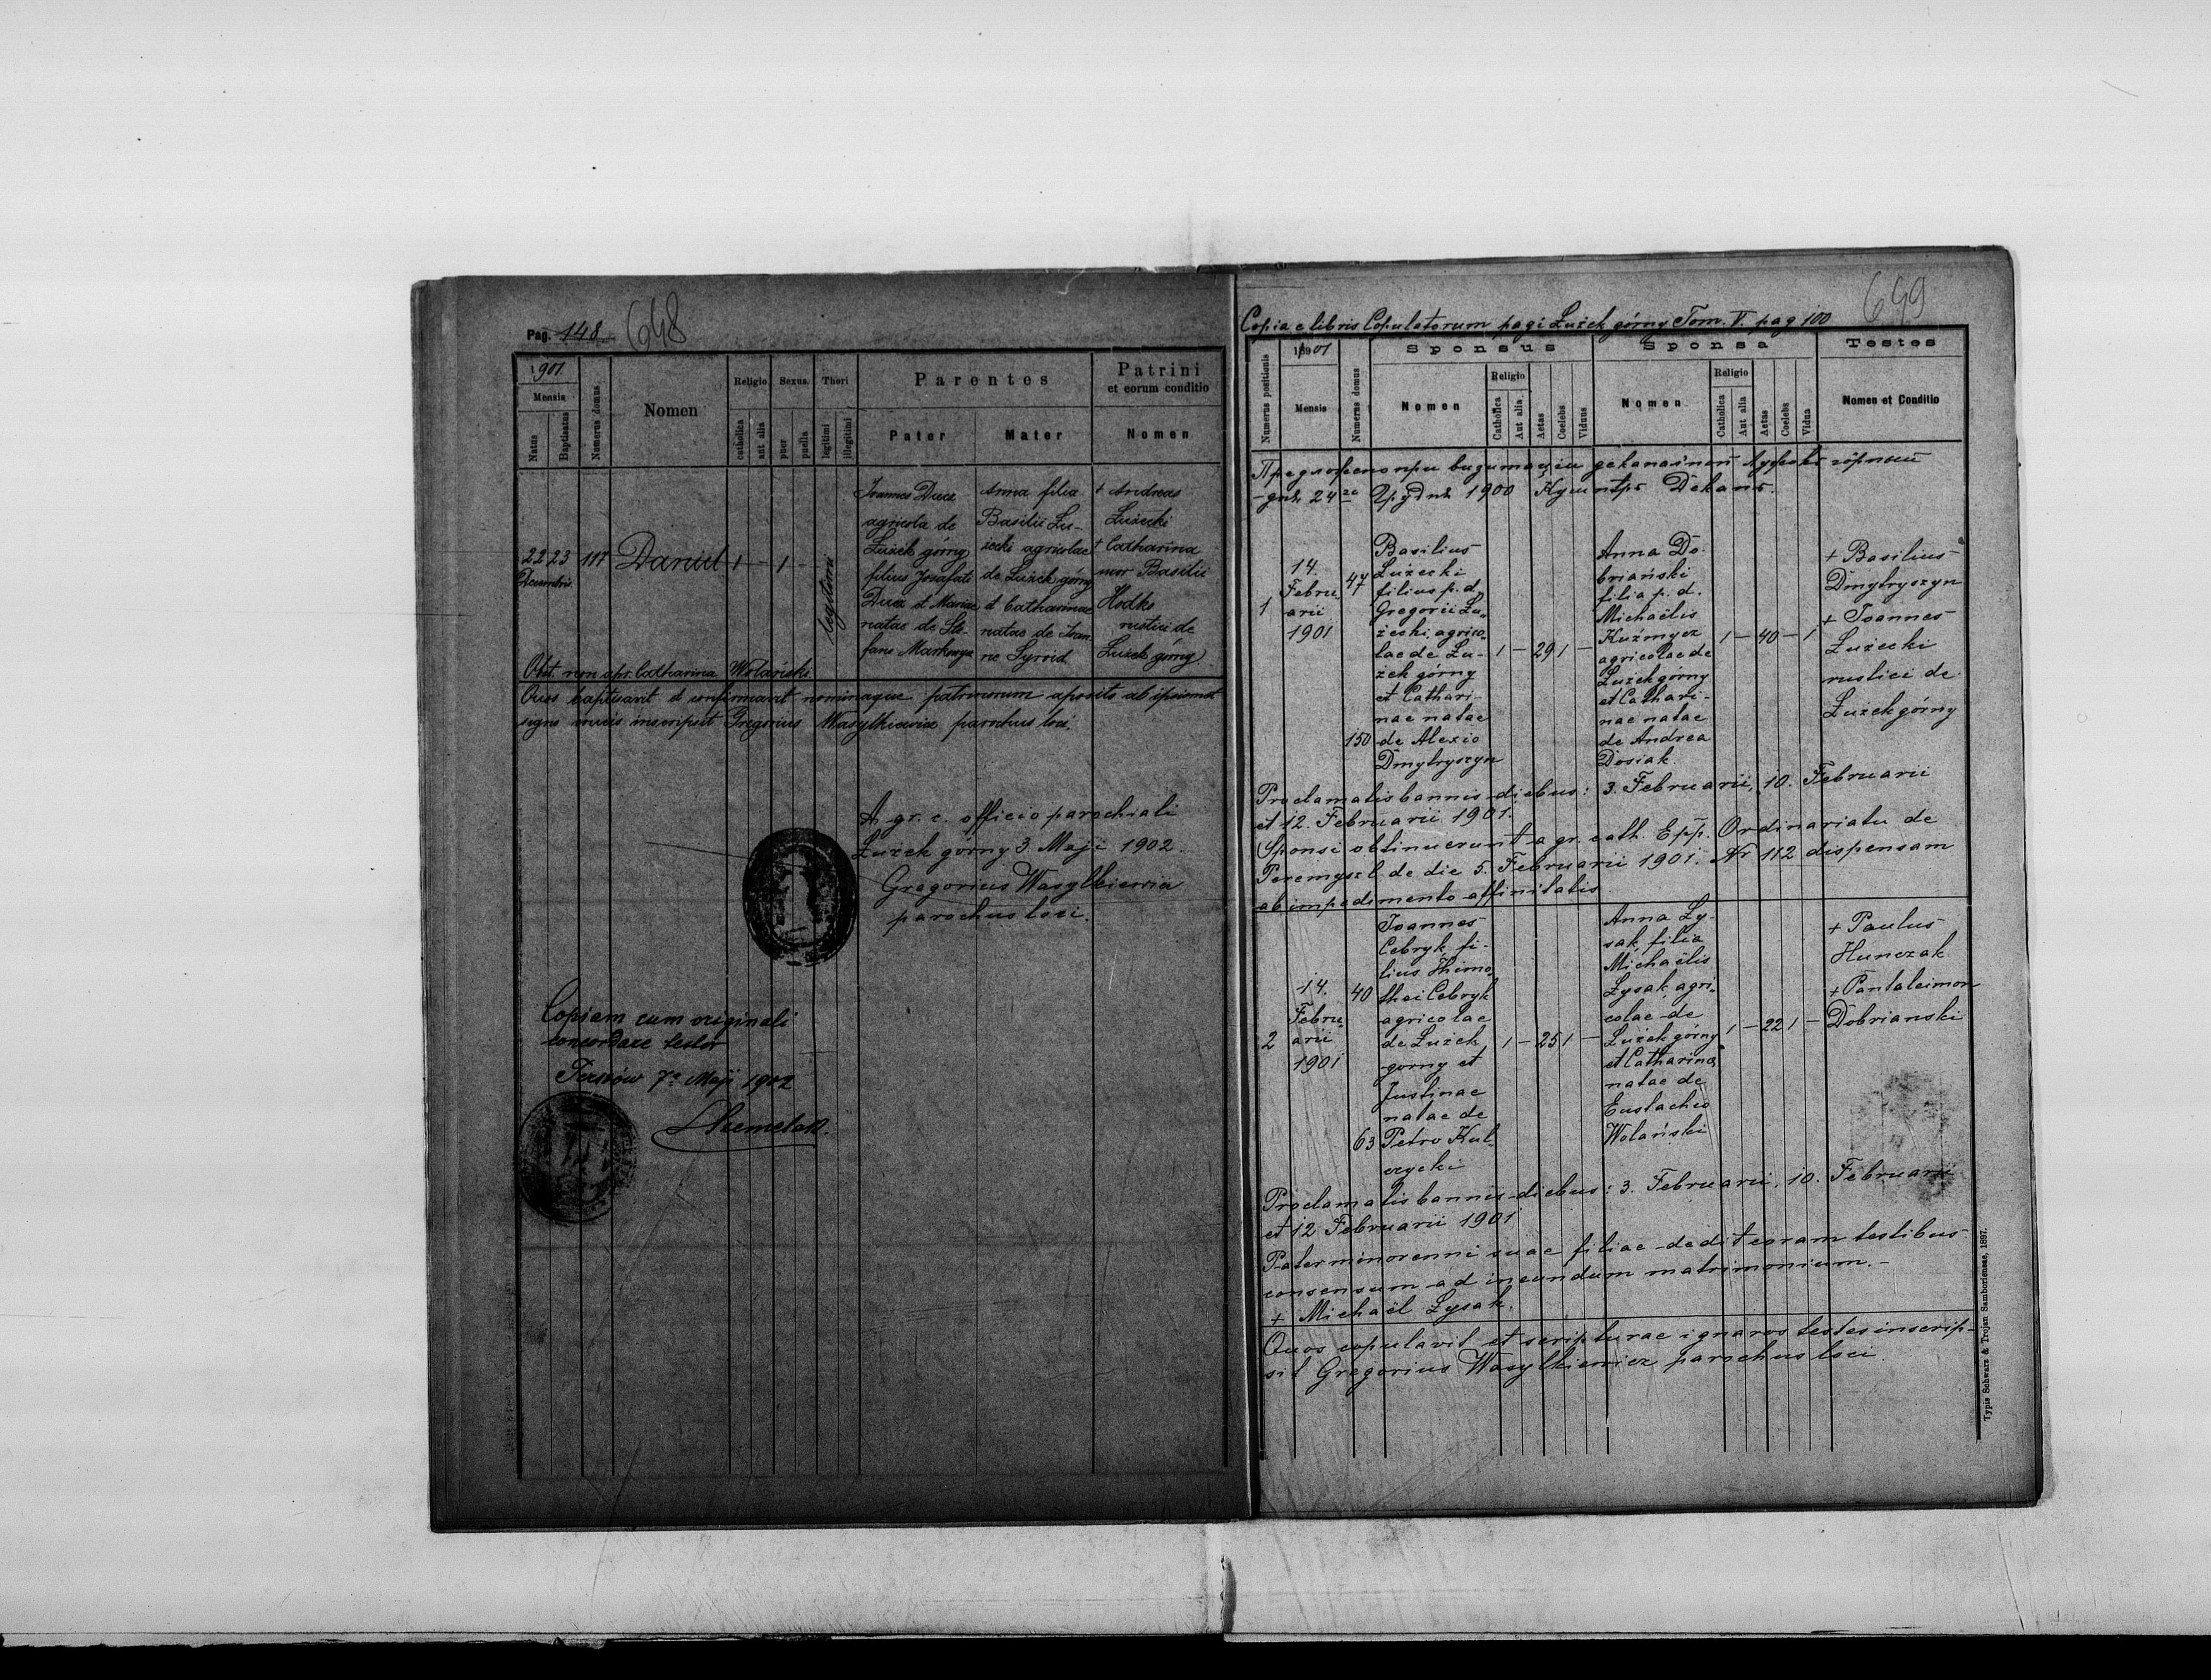 Pag. 148 648
1901
Mensis
Natus
Baptisatus
Numerus domus
Nomen
Religio
catholica
aut alia
Sexus
puer
puella
Thori
legitimi
illegitimi
Parentes
Pater
Mater
Patrini
et eorum conditio
Nomen
22 23
Decembris
117
Daniel
1 - 1 -
legitimi
Joannes Ducz
agricola de
Łużek górny
filius Josafati
Ducz et Mariae
natae de Ste-
fano Markowycz
Anna filia
Basilii Łu-
żecki agricolae
de Łużek górny
et Catharinae
natae de Joan-
ne Syroid
+ Andreas
Łużecki
+ Catharina
uxor Basilii
Hodko
rustici de
Łużek górny
Obst. non apr. Catharina Wolański
Quos baptisavit et confirmavit nominaque patrinorum aposito ab ipsismet
signo crucis inscripsit Gregorius Wasylkiewicz parochus loci.
A gr. c. officio parochiali
Łużek górny 3. Maji 1902.
Gregorius Wasylkiewicz
parochus loci.
Copiam cum originali
concordare testor
7º Maji 1902
649
Copia e libris Copulatorum pagi Łużek górny Tom. V. pag 100
Numerus positionis
1901
Mensis
Numerus domus
Sponsus
Nomen
Religio
Catholica
Aut alia
Aetas
Coelebs
Viduus
Sponsa
Nomen
Religio
Catholica
Aut alia
Aetas
Coelebs
Vidua
Testes
Nomen et Conditio
Предложено при визитаціи деканальной Лужокъ горный
дня 24го Грудня 1900
1
14.
Febru-
arii
1901
47
150
Basilius
Łużecki
filius p. d.
Gregorii Łu-
żecki, agrico-
lae de Łu-
żek górny
et Cathari-
nae natae
de Alexio
Dmytryszyn
1 - 29 1 -
Anna Do-
briański
filia p. d.
Michaëlis
Kuźmycz
agricolae de
Łużek górny
et Cathari-
nae natae
de Andrea
Dosiak
1 - 40 - 1
+ Basilius
Dmytryszyn
+ Joannes
Łużecki
rustici de
Łużek górny
Proclamatis bannis diebus: 3. Februarii, 10. Februarii
et 12. Februarii 1901.
Sponsi obtinuerunt a gr. cath. Epp. Ordinariatu de
Peremyszl de die 5. Februarii 1901. Nr 112 dispensam
ab impedimento affinitatis.
2
14.
Febru-
arii
1901
40
63
Joannes
Cebryk, fi-
lius Thimo-
thei Cebryk
agricolae
de Łużek
gorny et
Justinae
natae de
Petro Kul-
czycki
1 - 25 1 -
Anna Ły-
sak, filia
Michaëlis
Łysak agri-
colae de
Łużek górny
et Catharinae
natae de
Eustachio
Wolański
1 - 22 1 -
+ Paulus
Hunczak
+ Pantaleimon
Dobrianski
Proclamatis bannis diebus: 3. Februarii, 10. Februarii
et 12 Februarii 1901
Pater minorenni suae filiae dedit coram testibus
consensum ad ineundum matrimonium.-
+ Michaël Łysak.
Quos copulavit et scripturae ignaros testes inscrip-
sit Gregorius Wasylkiewicz parochus loci
Typis Schwarz & Trojan Samboriensae, 1897.